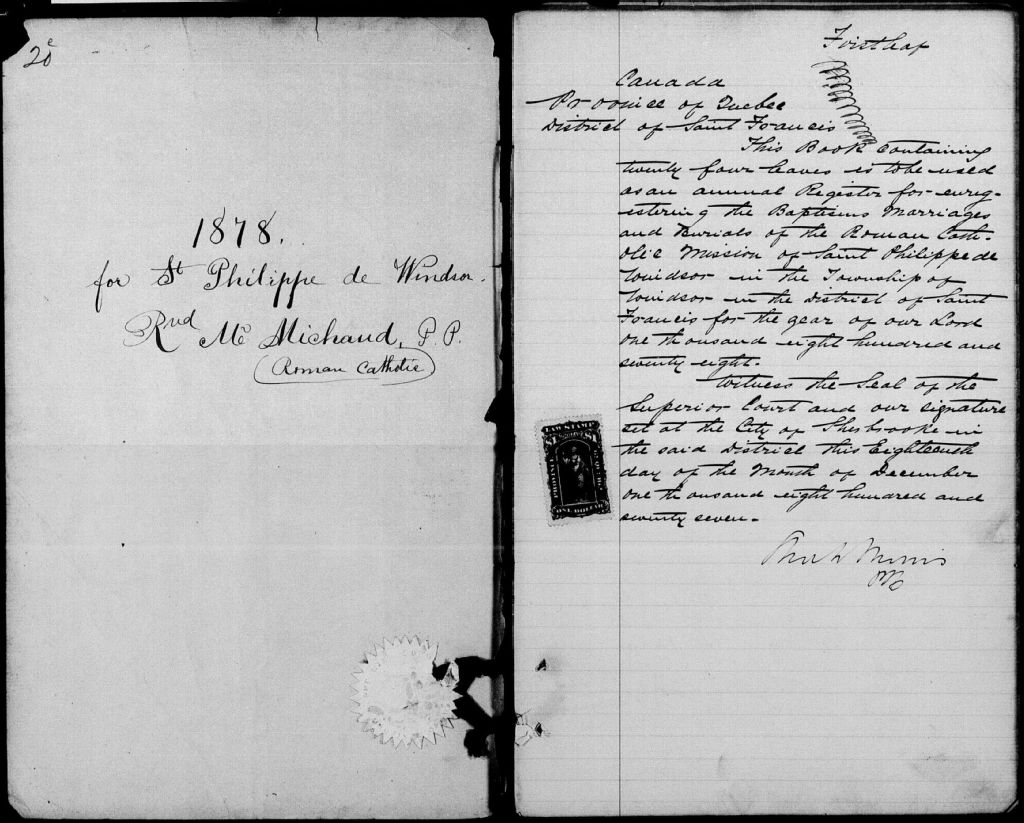 2e
1878.
for St Philippe de Windsor.
Rvd Mc Michaud, P. P.
Roman Catholic
First leaf
Canada
Province of Quebec
District of Saint Francis
This Book containing
twenty four leaves is to be used
as an annual Register for enreg-
istering the Baptisms Marriages
and Burials of the Roman Cath-
olic Mission of Saint Philippe de
Windsor in the Township of
Windsor in the District of Saint
Francis for the year of our Lord
one thousand eight hundred and
seventy eight.
Witness the Seal of the
Superior Court and our signature
set at the City of Sherbrooke in
the said District this Eighteenth
day of the Month of December
one thousand eight hundred and
seventy seven.
LAW STAMP
$1 $1
PROVINCE QUEBEC
ONE DOLLAR
Morris